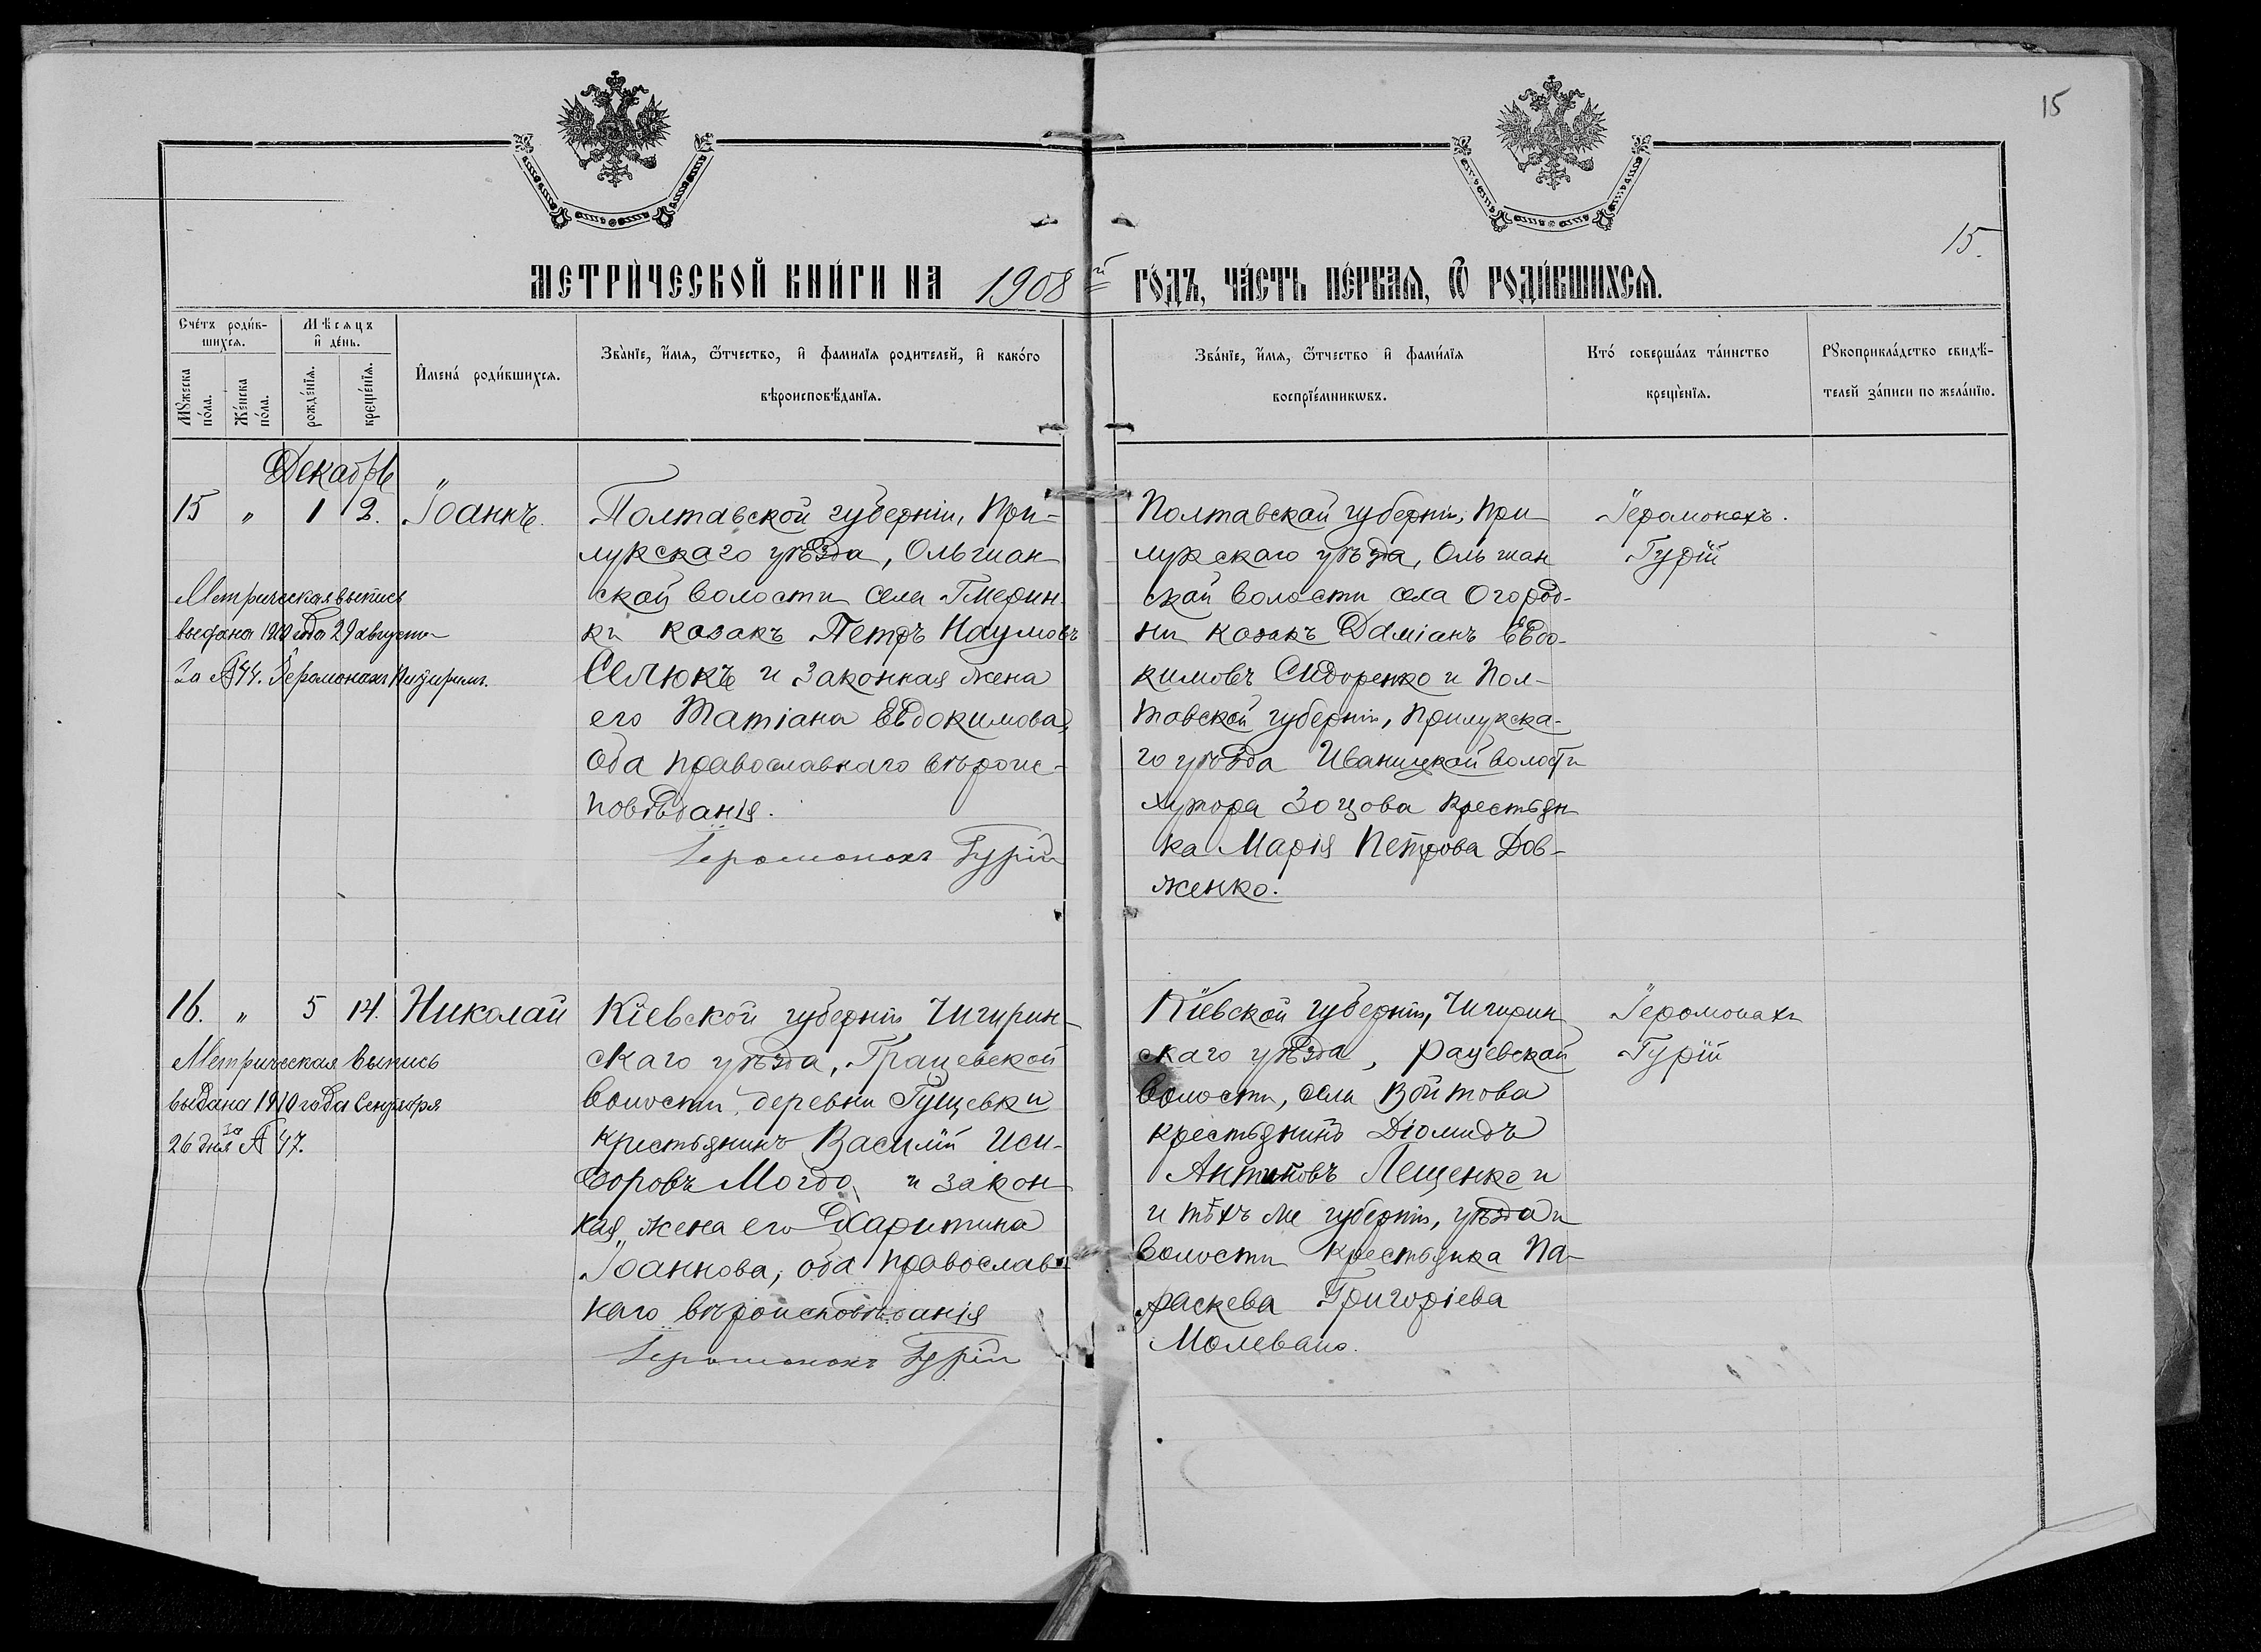 15
15.
МЕТРИ́ЧЕСКОЙ КНИ́ГИ НА 1908й ГО́ДЪ, ЧА́СТЬ ПЕ́РВАЯ, Ѿ РОДИ́ВШИХСЯ.
Сче́тъ роди́вшихся.
Мѣсяцъ и де́нь.
Му́жеска по́ла.
Же́нска по́ла.
рожде́нїя.
креще́нїя.
Имена́ роди́вшихся.
Зва́нїе, и́мя, о́тчество, и фамилїя родителей, и како́го
вѣроисповѣ́данїя.
Зва́нїе, и́мя, о́тчество и фами́лїя
воспрїе́мниковъ.
Кто́ соверша́лъ та́инство
креще́нїя.
Рукоприкла́дство свидѣ́-
телей за́писи по жела́нїю.
Декабрь
15 " 1 2. Іоаннъ.
Метрическая выпись
выдана 1910 года 29 августа
За № 44. Іеромонахъ
Полтавской губерніи, При-
лукскаго уѣзда, Ольшан
ской волости села
ки козакъ Петръ Наумовъ
Селюкъ и законная жена
его Татіана Евдокимова,
оба православнаго вѣроис-
повѣданія.
Іеромонахъ Гурій
Полтавской губерніи, При
лукскаго уѣзда, Ольшан
ской волости села Огород-
ни козакъ Даміанъ Евдо-
кимовъ Сидоренко и Пол-
тавской губерніи, Прилукска-
го уѣзда Иваницкой волости
хутора Зоцова крестьян
ка Марія Петрова Дов-
женко.
Іеромонахъ.
Гурій
16. " 5 14. Николай
Метрическая выпись
выдана 1910 года Сентября
26 дня за № 47.
Кіевской губерніи Чигирин-
скаго уѣзда, Грацевской
волости, деревни Гущевки
крестьянинъ Василій Иси-
доровъ Могдо и закон
ная жена его Харитина
Іоаннова, оба православ
наго вѣроисповѣданія
Іеромонахъ Гурій
Кіевской губерніи, Чигирин
скаго уѣзда, рацевской
волости, села Войтова
крестьянинъ Діомидъ
Антиповъ Лещенко и
и тѣхъ же губерніи, уѣзда и
волости крестьянка Па-
раскева Григоріева
Іеромонахъ
Гурій